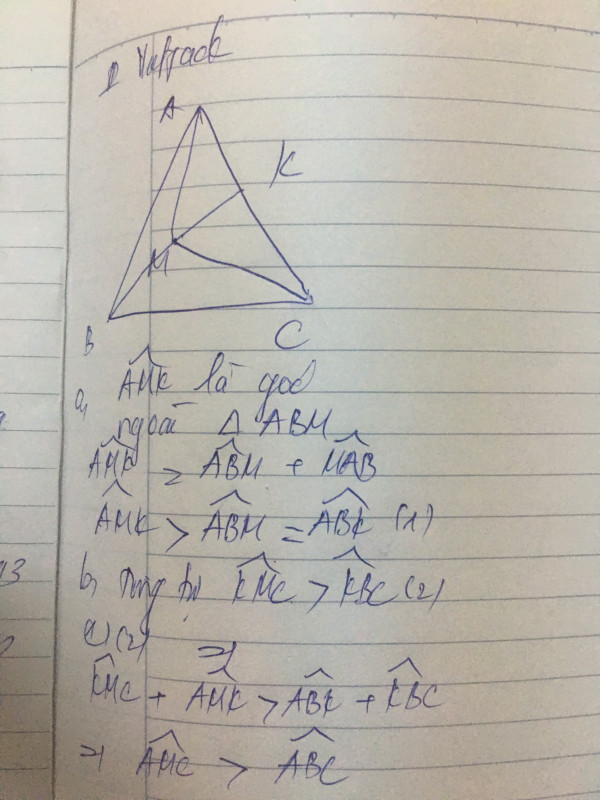 A
K
M
B
C
a, AMK là góc
ngoài Δ ABM
AMK = ABM + MAB
AMK > ABM = ABK (1)
b, Tương tự KMC > KBC (2)
(1)(2)
=>
KMC + AMK > ABK + KBC
=> AMC > ABC